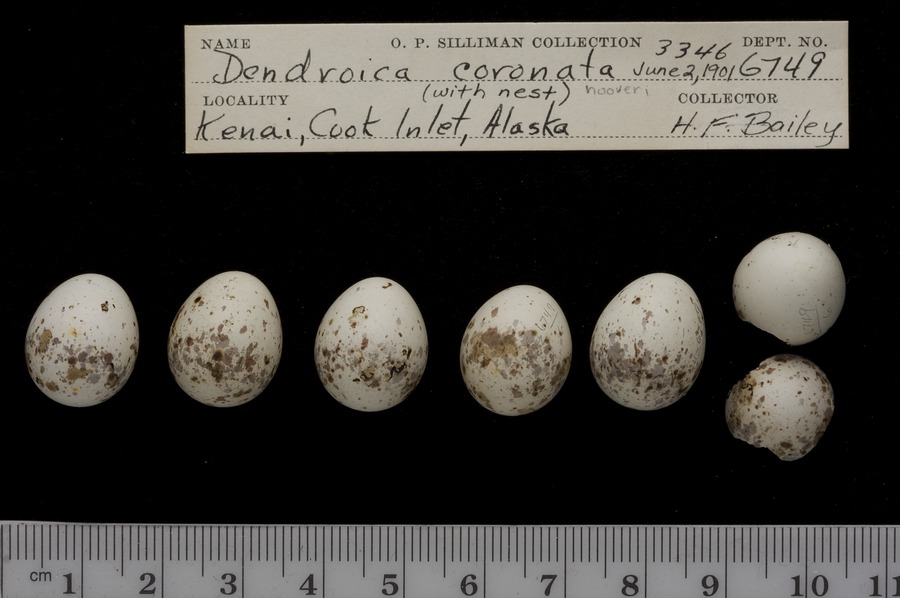 NAME O. P. SILLIMAN COLLECTION 3346 DEPT. NO.
Dendroica coronata June 2, 1901 6749
(with nest) hooveri
LOCALITY COLLECTOR
Kenai, Cook Inlet, Alaska H. F. Bailey
6749
cm 1 2 3 4 5 6 7 8 9 10 11